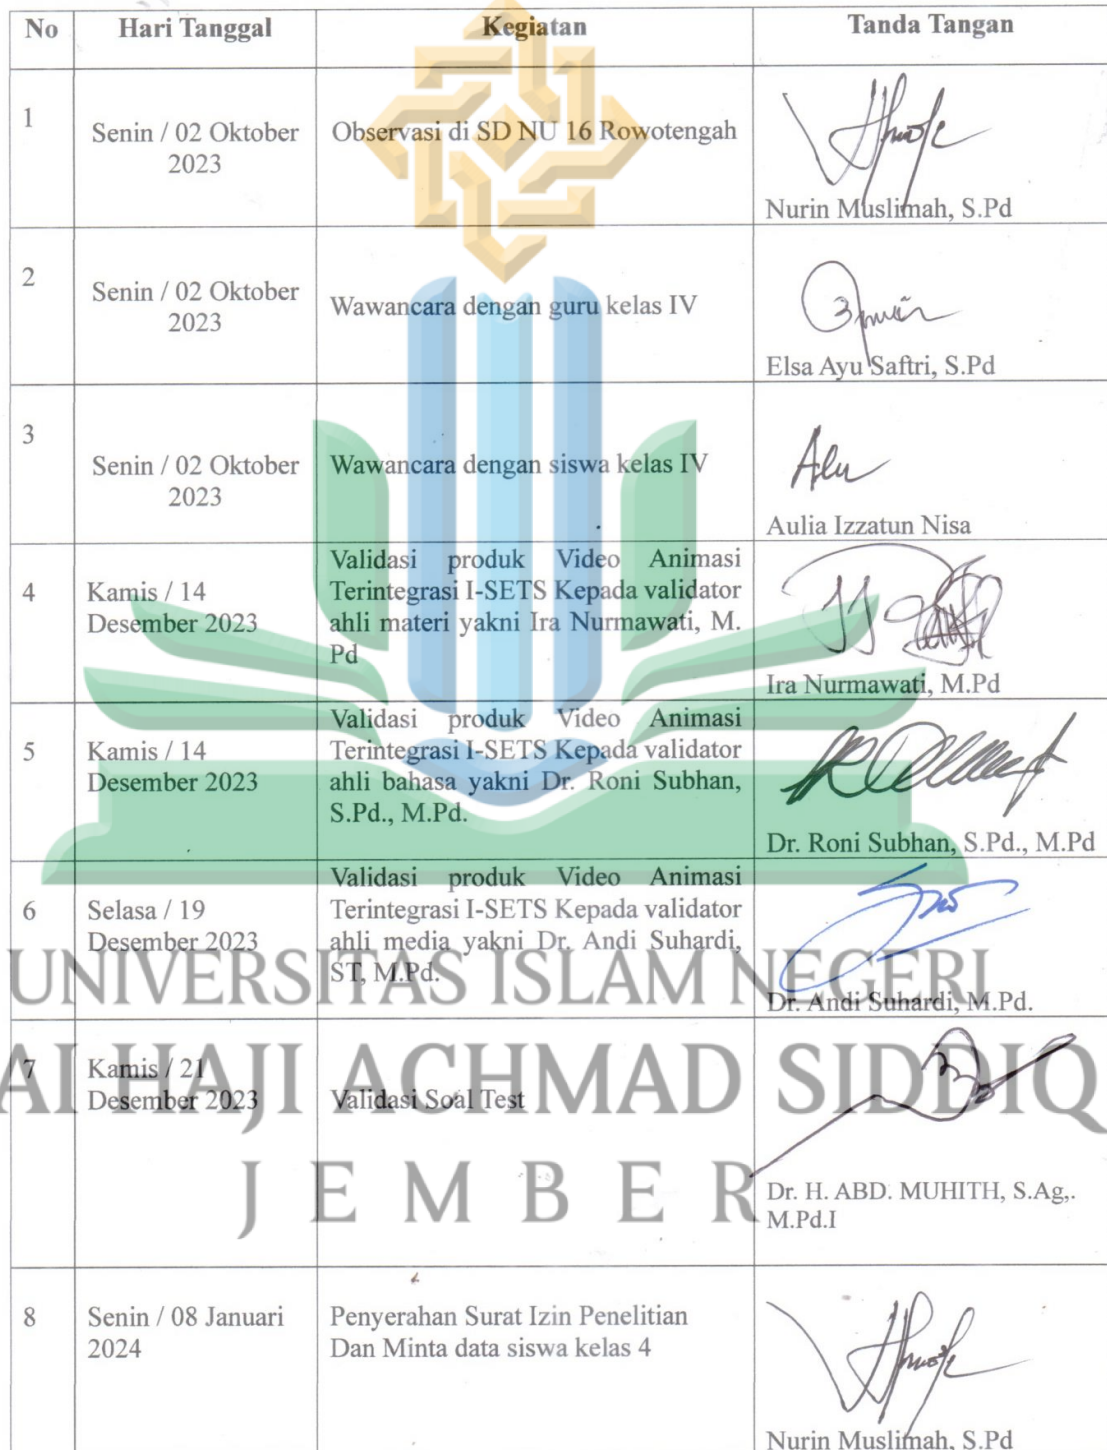 No Hari Tanggal Kegiatan Tanda Tangan
1
Senin / 02 Oktober
2023
Observasi di SD NU 16 Rowotengah
Nurin Muslimah, S.Pd
2
Senin / 02 Oktober
2023
Wawancara dengan guru kelas IV
Elsa Ayu Saftri, S.Pd
3
Senin / 02 Oktober
2023
Wawancara dengan siswa kelas IV
Aulia Izzatun Nisa
4
Kamis / 14
Desember 2023
Validasi produk Video Animasi
Terintegrasi I-SETS Kepada validator
ahli materi yakni Ira Nurmawati, M.
Pd
Ira Nurmawati, M.Pd
5
Kamis / 14
Desember 2023
Validasi produk Video Animasi
Terintegrasi I-SETS Kepada validator
ahli bahasa yakni Dr. Roni Subhan,
S.Pd., M.Pd.
Dr. Roni Subhan, S.Pd., M.Pd
6
Selasa / 19
Desember 2023
Validasi produk Video Animasi
Terintegrasi I-SETS Kepada validator
ahli media yakni Dr. Andi Suhardi,
ST, M.Pd.
Dr. Andi Suhardi, M.Pd.
UNIVERSITAS ISLAM NEGERI
7
Kamis / 21
Desember 2023
Validasi Soal Test
Dr. H. ABD. MUHITH, S.Ag,.
M.Pd.I
AI HAJI ACHMAD SIDDIQ
JEMBER
8
Senin / 08 Januari
2024
Penyerahan Surat Izin Penelitian
Dan Minta data siswa kelas 4
Nurin Muslimah, S.Pd